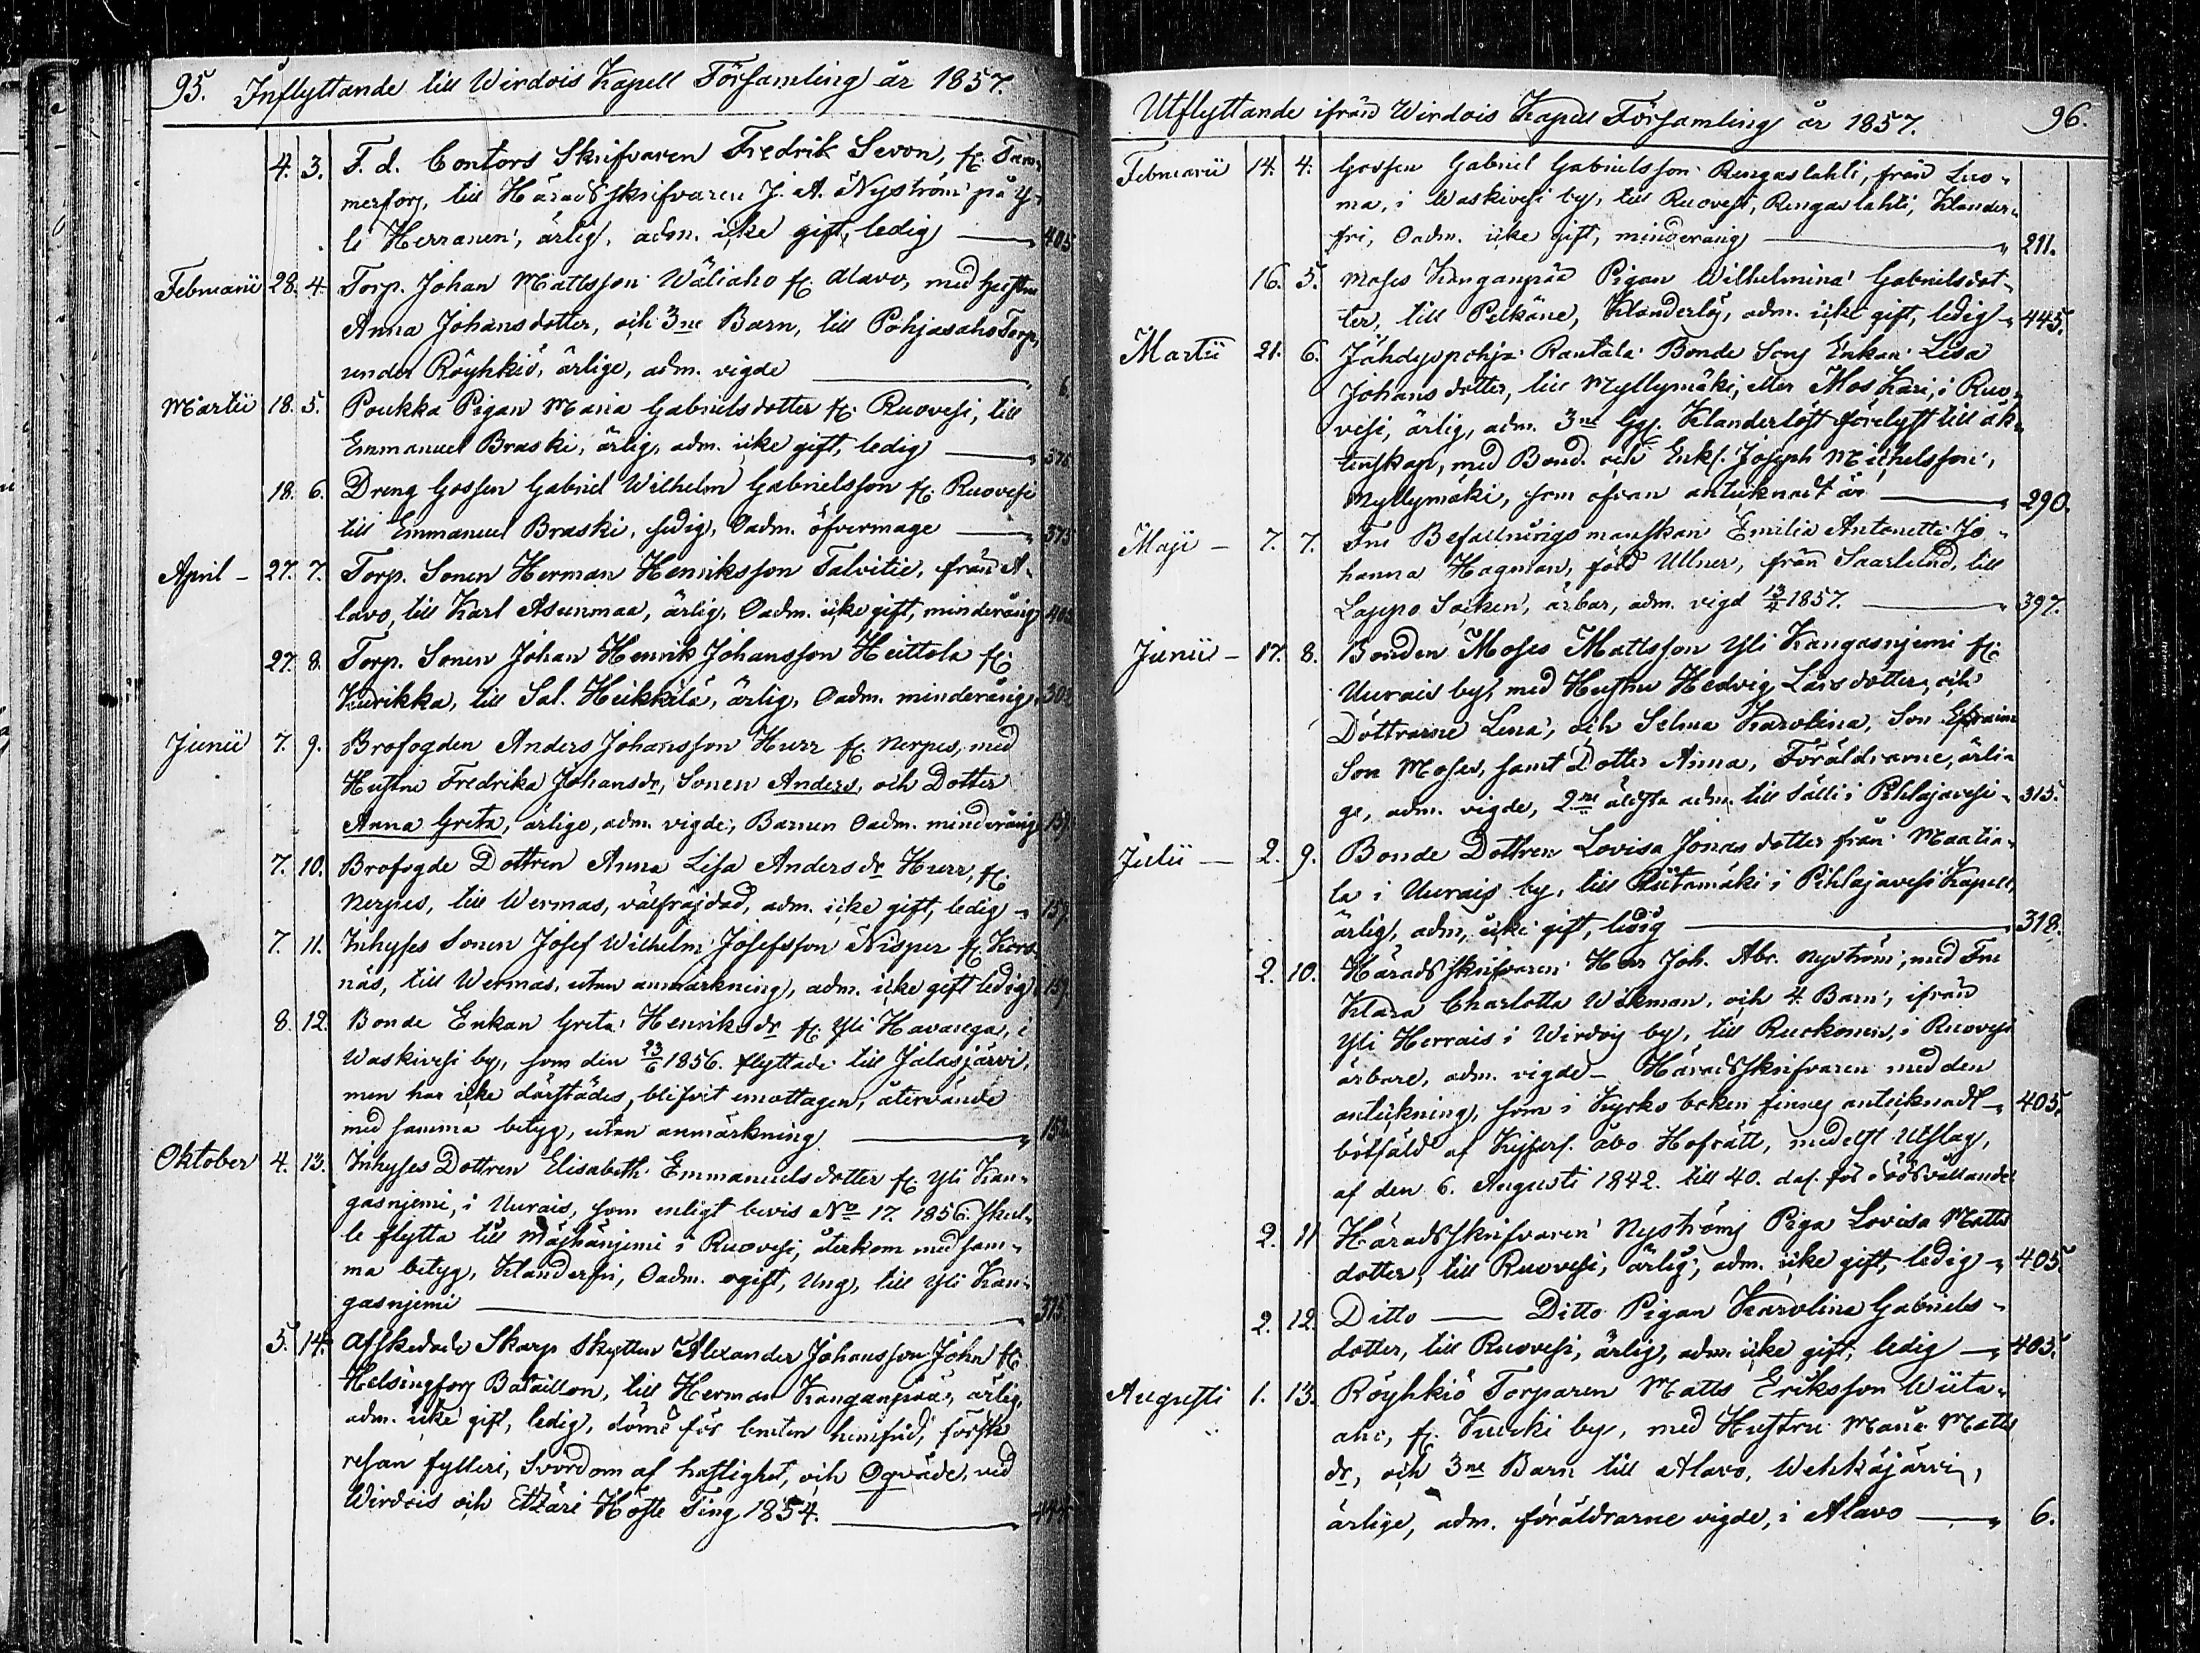 95. Inflyttande till Wirdois Kapell Församling år 1857.
4. 3. F. d. Contors Skrifvaren Fredrik Sevon, fr. Tam-
merfors, till Häradsskrifvaren J. A. Nyström på Y-
li Herranen, ärlig, adm. icke gift, ledig — „ 405
Februarii 28. 4. Torp. Johan Mattsson Wäliaho fr. Alavo, med hustru
Anna Johansdotter, och 3ne Barn, till Pohjasaho Torp,
under Röyhkiö, ärlige, adm. vigde — „ 6
Martii 18. 5. Poukka Pigan Maria Gabrielsdotter fr. Ruovesi, till
Emmanuel Braski, ärlig, adm. icke gift, ledig — „
18. 6. Dreng Gossen Gabriel Wilhelm Gabrielsson fr. Ruovesi
till Emmanuel Braski, ledig, Oadm. öfvermage — „ 575
April — 27. 7. Torp. Sonen Herman Henriksson Talvitie, från A-
lavo, till Karl Asunmaa, ärlig, Oadm. icke gift, minderårig
27. 8. Torp. Sonen Johan Henrik Johansson Heittola fr.
Kurikka, till Sal. Heikkilä, ärlig, Oadm. minderårig,
Junii 7. 9. Brofogden Anders Johansson Hurr fr. Nerpes, med
Hustru Fredrika Johansdr, Sonen Anders, och Dotter
Anna Greta, ärlige, adm. vigde, Barnen Oadm. minderårige 159
7. 10. Brofogde Dottren Anna Lisa Andersdr Hurr, fr.
Nerpes, till Wermas, välfräjdad, adm. icke gift, ledig „ 159.
7. 11. Inhyses Sonen Josef Wilhelm Josefsson Nisper fr. Kors-
näs, till Wermas, utan anmärkning, adm. icke gift ledig „ 159.
8. 12. Bonde Enkan Greta Henriksdr fr. Yli Havanga, i
Waskivesi by, som den 23/6 1856. flyttade till Jalasjärvi,
men har icke därstädes blifvit emottagen, återvände
med samma betyg, utan anmärkning —
Oktober 4. 13. Inhyses Dottren Elisabeth Emmanuelsdotter fr. Yli Kan-
gasnjemi, i Uurais, som enligt bevis No 17. 1856. skul-
le flytta till Mäjhänjemi i Ruovesi, återkom med sam-
ma betyg, Klanderfri, Oadm. ogift, Ung, till Yli Kan-
gasnjemi — „ 315.
5. 14. Afskedade Skarp Skytten Alexander Johansson John fr.
Helsingfors Bataillon, till Herman Kanganpää, ärlig,
adm. icke gift, ledig, dömd för hemfrid, första
resan fylleri, Svordom af hastighet, och Oqväde, vid
Wirdois och Etzäri Höste Ting 1854. —
Utflyttande ifrån Wirdois Kapell Församling år 1857. 96.
Februarii 14. 4. Gossen Gabriel Gabrielsson Rengaslahti, från Luo-
ma, i Waskivesi by, till Ruovesi, Rengaslahti, Klander-
fri, Oadm. icke gift, minderårig — „ 211.
16. 5. Moses Kanganpää Pigan Wilhelmina Gabrielsdot-
ter, till Pelkäne, Klanderlös, adm. icke gift, ledig „ 445.
Martii 21. 6. Jähdyspohja Rantala Bonde Sons Enkan Lisa
Johansdotter, till Myllymäki, eller Mos Kari, i Ruo-
vesi, ärlig, adm. 3ne Ggr. Klanderlöst förelyst till äk-
tenskap, med Bond. och Enkl. Joseph Michelsson,
Myllymäki, som ofvan antecknadt är — „ 290.
Maji — 7. 7. Fru Befallningsmanskan Emilia Antonetta Jo-
hanna Hagman, född Ullner, från Saarlund, till
Lappo Socken, ärbar, adm. vigd 13/4 1857. — „ 397.
Junii — 17. 8. Bonden Moses Mattsson Yli Kangasnjemi fr.
Uurais by, med Hustru Hedvig Larsdotter, och
Döttrarne Lena, och Selma Karolina, Son Efraim
Son Moses, samt Dotter Anna, Föräldrarne, ärli-
ge, adm. vigde, 2ne äldsta adm. till Sälli i Pihlajavesi „ 315.
Julii — 2. 9. Bonde Dottren Lovisa Jonasdotter från Maatia-
la i Uurais by, till Riitamäki i Pihlajavesi Kapell,
ärlig, adm, icke gift, ledig — 318.
2. 10. Häradsskrifvaren Herr Joh. Abr. Nyström, med Fru
Klara Charlotta Wikman, och 4. Barn, ifrån
Yli Herrais i Wirdois by, till Ruokonen, i Ruovesi
ärbare, adm. vigde — Häradsskrifvaren med den
anteckning, som i Kyrko boken finnes antecknadt „ 405.
bötfäld af Kejserl. Åbo Hofrätt, medelst Utslag,
af den 6. Augusti 1842. till 40. dal. för dödsvållande.
2. 11 Häradsskrifvaren Nyströms Piga Lovisa Matts
dotter, till Ruovesi, ärlig, adm. icke gift, ledig „ 405.
2. 12. Ditto — Ditto Pigan Karolina Gabriels-
dotter, till Ruovesi, ärlig, adm. icke gift, ledig — „ 405.
Augusti 1. 13. Röyhkiö Torparen Matts Eriksson Wiita-
aho, fr. Kurki by, med Hustru Maria Matts
dr, och 3ne Barn till Alavo, Wehkäjärvi,
ärlige, adm. föräldrarne vigde, i Alavo — „ 6.